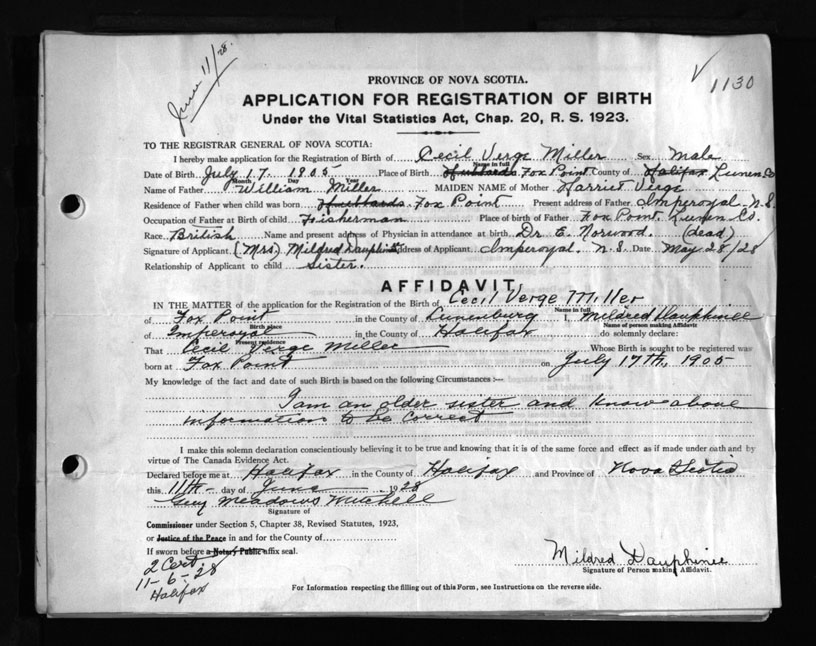 June 11/28.
√ 1130
PROVINCE OF NOVA SCOTIA.
APPLICATION FOR REGISTRATION OF BIRTH
Under the Vital Statistics Act, Chap. 20, R. S. 1923.
TO THE REGISTRAR GENERAL OF NOVA SCOTIA:
I hereby make application for the Registration of Birth of Cecil Verge Miller Sex Male
Name in full
Date of Birth July 17 1905 Place of Birth Hubbards Fox Point. County of Halifax Lunen. Co
Month Day Year
Name of Father William Miller MAIDEN NAME of Mother Harriet Verge
Residence of Father when child was born Hubbards Fox Point Present address of Father Imperoyal N.S.
Occupation of Father at Birth of child Fisherman Place of birth of Father Fox Point. Lunen Co.
Race British Name and present address of Physician in attendance at birth Dr. E. Norwood. (dead)
Signature of Applicant (Mrs) Mildred Dauphinee Address of Applicant Imperoyal. N.S. Date May 28/28
Relationship of Applicant to child Sister.
AFFIDAVIT
IN THE MATTER of the application for the Registration of the Birth of Cecil Verge Miller
Name in full
of Fox Point in the County of Lunenburg I, Mildred Dauphinee
Birth place Name of person making Affidavit
of Imperoyal in the County of Halifax do solemnly declare:
Present residence
That Cecil Verge Miller Whose Birth is sought to be registered was
born at Fox Point on July 17th, 1905
My knowledge of the fact and date of such Birth is based on the following Circumstances :—
I am an older sister and know above
information to be correct
I make this solemn declaration conscientiously believing it to be true and knowing that it is of the same force and effect as if made under oath and by
virtue of The Canada Evidence Act.
Declared before me at Halifax in the County of Halifax and Province of Nova Scotia
this 11th day of June 1928
Guy Meadows Mitchell
Signature of
Commissioner under Section 5, Chapter 38, Revised Statutes, 1923,
or Justice of the Peace in and for the County of
If sworn before a Notary Public affix seal.
Mildred Dauphinee
Signature of Person making Affidavit.
2 Cert.
11-6-28
Halifax
For Information respecting the filling out of this Form, see Instructions on the reverse side.